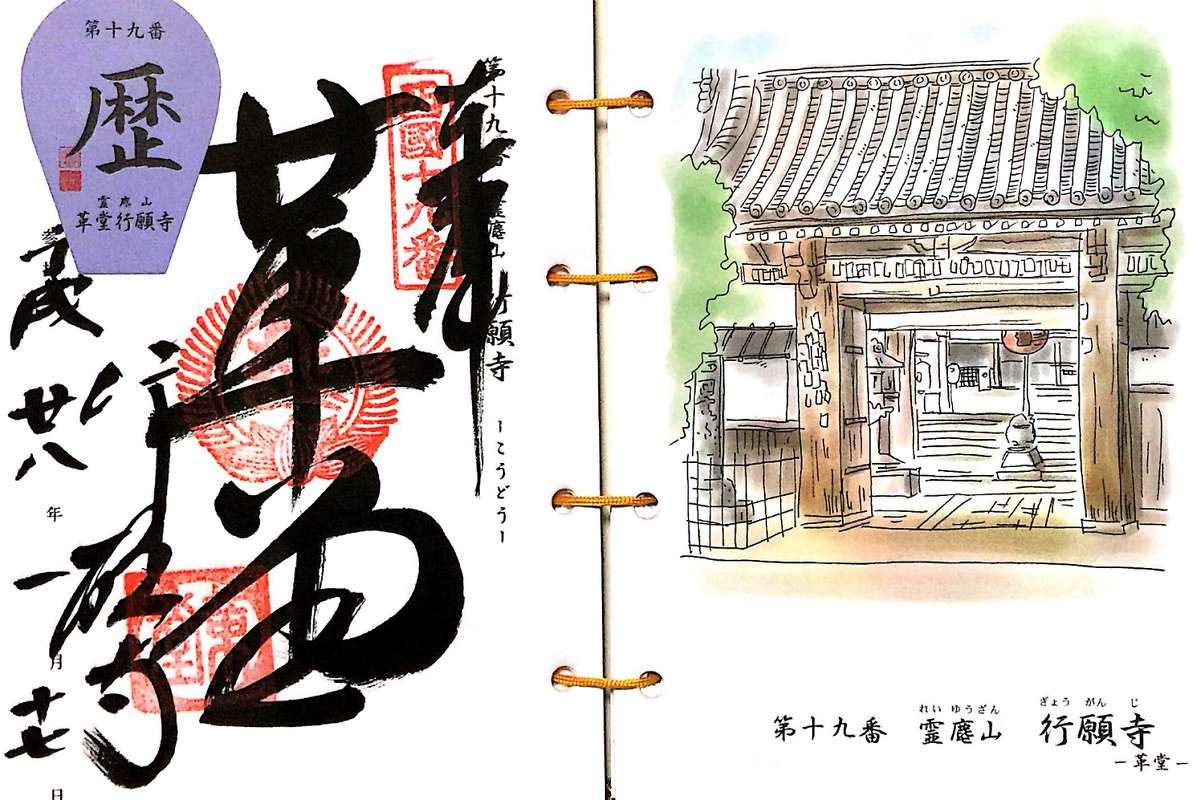 第十九番
歴
霊麀山
革堂行願寺
奉
西國十九番
第十九番 霊麀山 行願寺 ーこうどうー
革堂
行願寺
平成廿八年一月十七日
第十九番 霊麀山 行願寺
れいゆうざん ぎょうがんじ
ー革堂ー